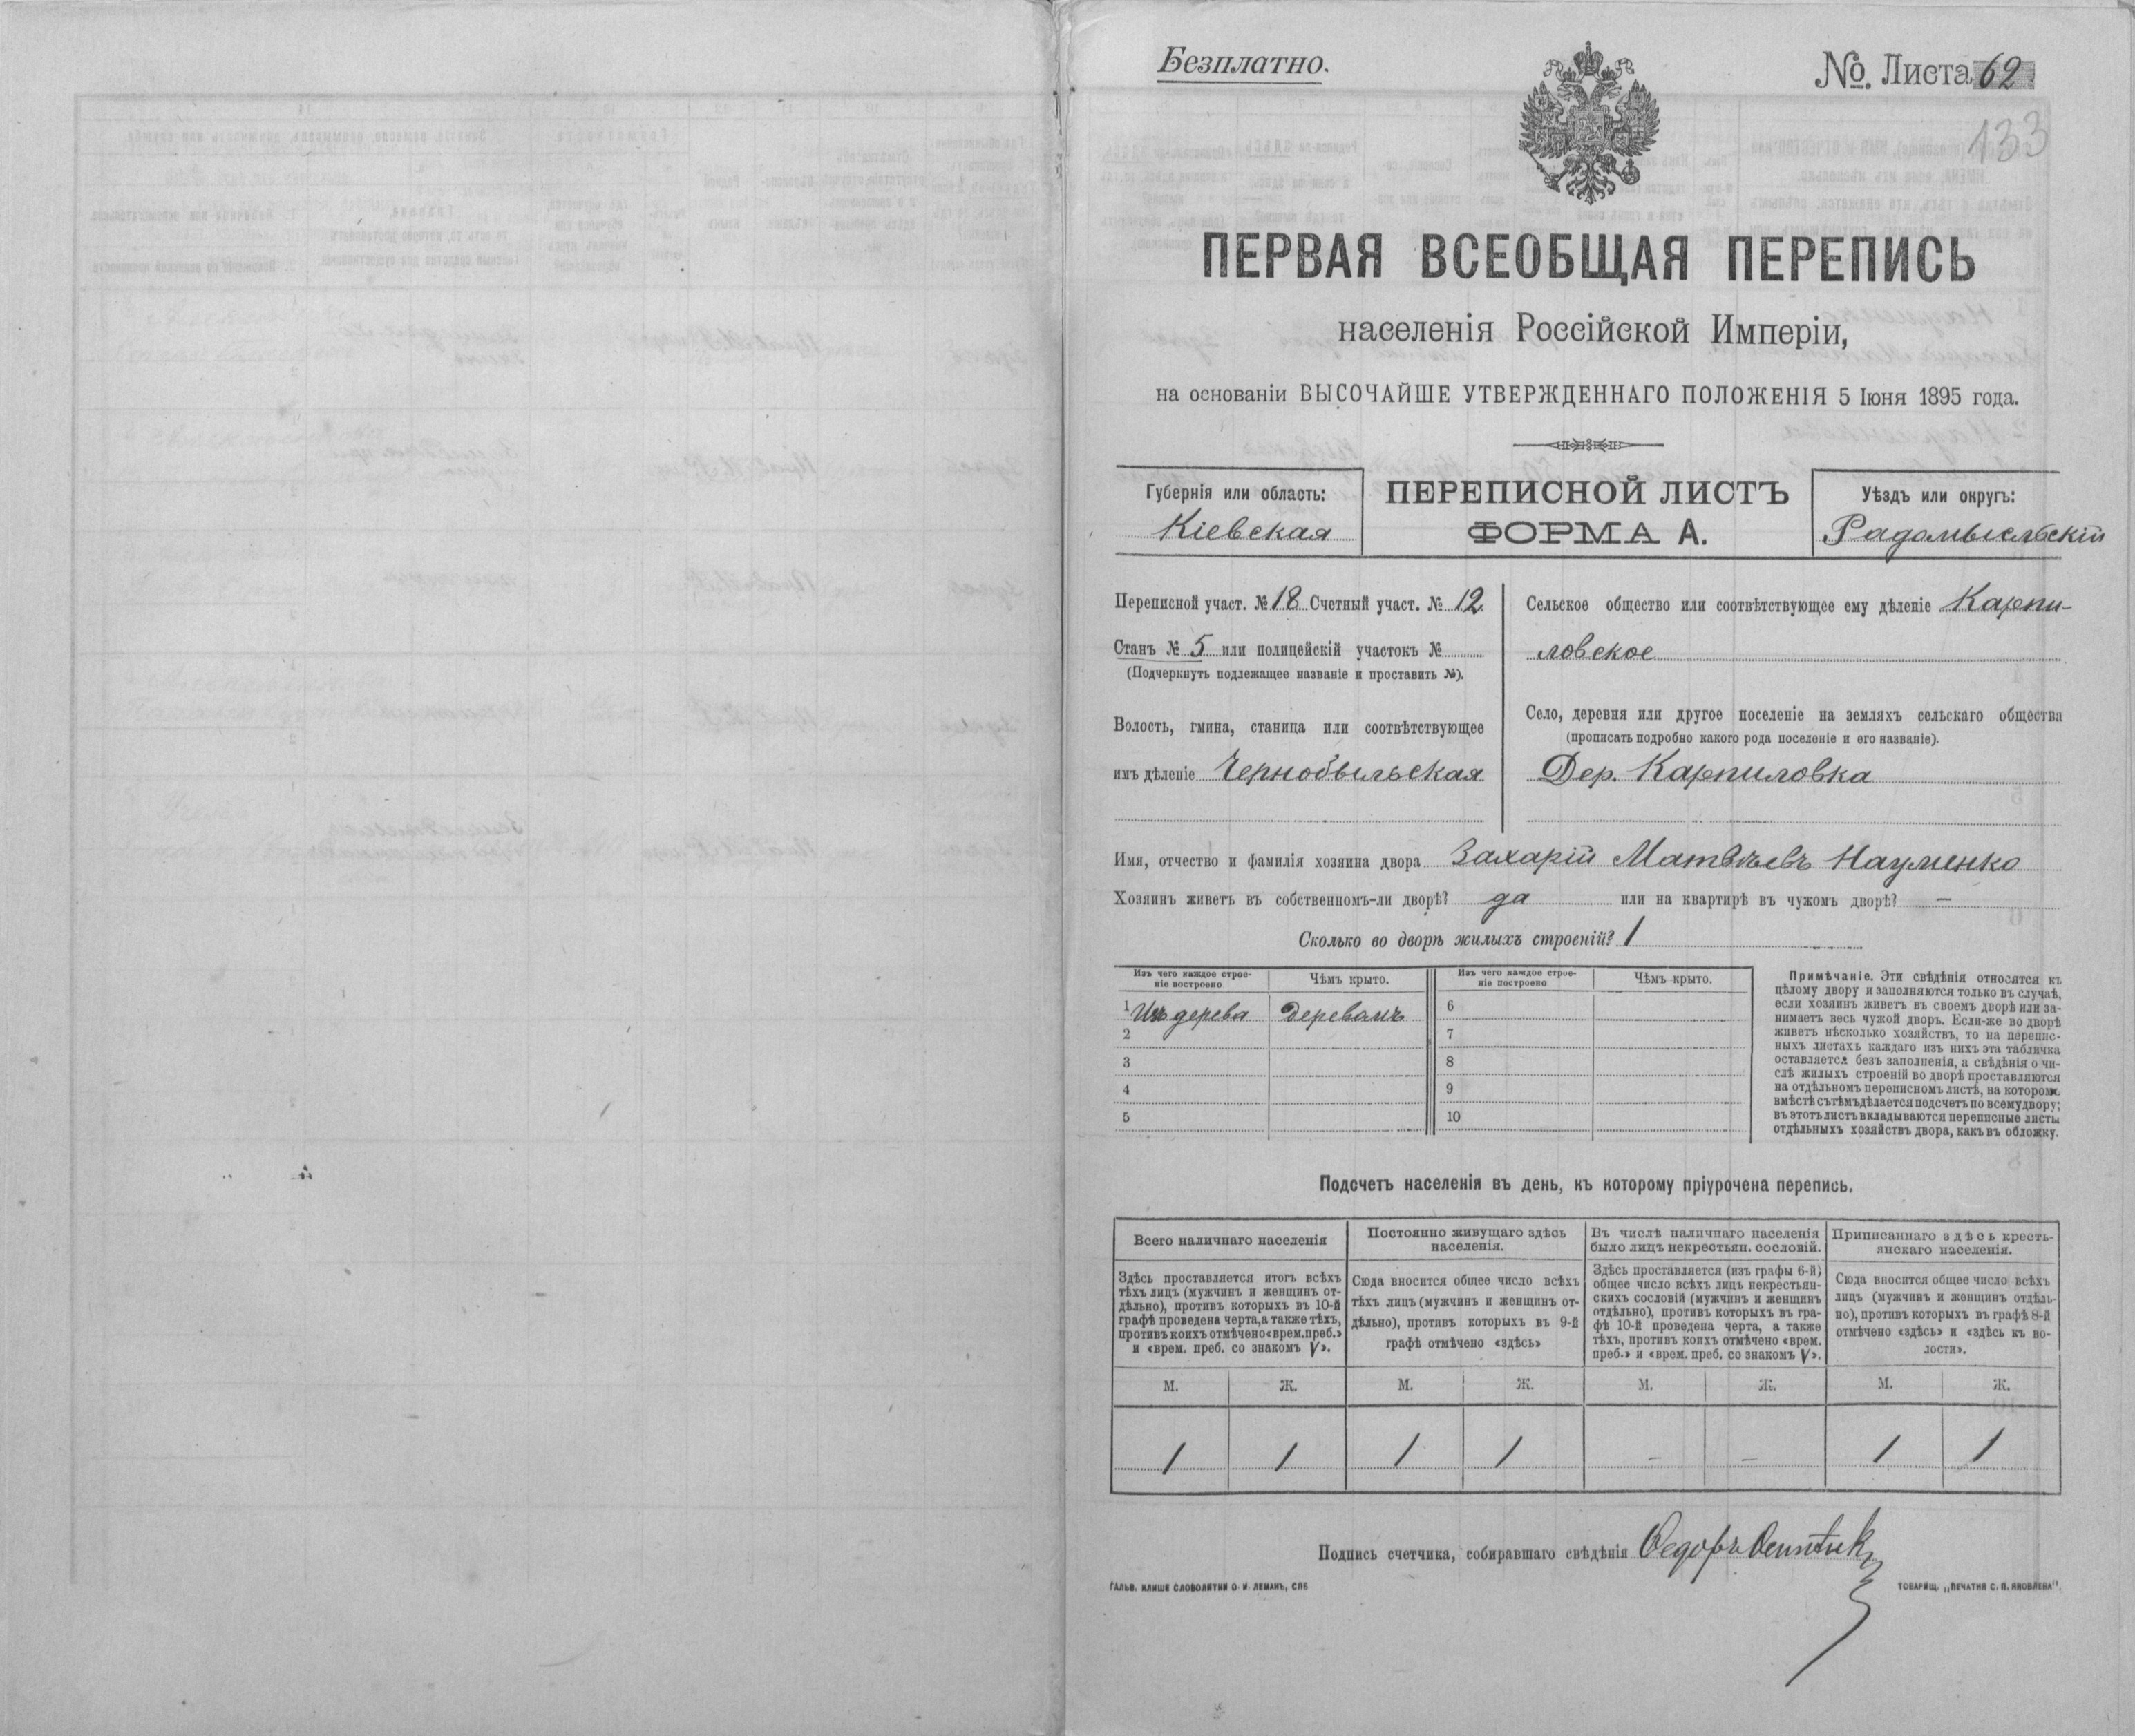 Безплатно.
№. Листа 62
133
ПЕРВАЯ ВСЕОБЩАЯ ПЕРЕПИСЬ
населенія Россійской Имперіи,
на основаніи ВЫСОЧАЙШЕ УТВЕРЖДЕННАГО ПОЛОЖЕНІЯ 5 Іюня 1895 года.
Губернія или область:
Кіевская
ПЕРЕПИСНОЙ ЛИСТЪ
ФОРМА А.
Уѣздъ или округъ:
Радомысльскій
Переписной участ. № 18 Счетный участ. № 12.
Станъ № 5 или полицейскій участокъ №
(Подчеркнуть подлежащее названіе и проставить №).
Волость, гмина, станица или соотвѣтствующее
имъ дѣленіе Чернобыльская
Сельское общество или соотвѣтствующее ему дѣленіе Карпи-
ловское
Село, деревня или другое поселеніе на земляхъ сельскаго общества
(прописать подробно какого рода поселеніе и его названіе).
Дер. Карпиловка
Имя, отчество и фамилія хозяина двора Захарій Матвѣевъ Науменко
Хозяинъ живетъ въ собственномъ-ли дворѣ? да или на квартирѣ въ чужомъ дворѣ? —
Сколько во дворѣ жилыхъ строеній? 1
Изъ чего каждое строе-
ніе построено
Чѣмъ крыто.
Изъ чего каждое строе-
ніе построено
Чѣмъ крыто.
1 Изъ дерева Деревомъ 6
2 7
3 8
4 9
5 10
Примѣчаніе. Эти свѣдѣнія относятся къ
цѣлому двору и заполняются только въ случаѣ,
если хозяинъ живетъ въ своемъ дворѣ или за-
нимаетъ весь чужой дворъ. Если-же во дворѣ
живетъ нѣсколько хозяйствъ, то на перепис-
ныхъ листахъ каждаго изъ нихъ эта табличка
оставляется безъ заполненія, а свѣдѣнія о чи-
слѣ жилыхъ строеній во дворѣ проставляются
на отдѣльномъ переписномъ листѣ, на которомъ
вмѣстѣ съ тѣмъ дѣлается подсчетъ по всему двору;
въ этотъ листъ вкладываются переписные листы
отдѣльныхъ хозяйствъ двора, какъ въ обложку.
Подсчетъ населенія въ день, къ которому пріурочена перепись.
Всего наличнаго населенія
Здѣсь проставляется итогъ всѣхъ
тѣхъ лицъ (мужчинъ и женщинъ от-
дѣльно), противъ которыхъ въ 10-й
графѣ проведена черта, а также тѣхъ,
противъ коихъ отмѣчено «врем. преб.»
и «врем. преб. со знакомъ V».
Постоянно живущаго здѣсь
населенія.
Сюда вносится общее число всѣхъ
тѣхъ лицъ (мужчинъ и женщинъ от-
дѣльно), противъ которыхъ въ 9-й
графѣ отмѣчено «здѣсь»
Въ числѣ наличнаго населенія
было лицъ некрестьян. сословій.
Здѣсь проставляется (изъ графы 6-й)
общее число всѣхъ лицъ некрестьян-
скихъ сословій (мужчинъ и женщинъ
отдѣльно), противъ которыхъ въ гра-
фѣ 10-й проведена черта, а также
тѣхъ, противъ коихъ отмѣчено «врем.
преб.» и «врем. преб. со знакомъ V».
Приписаннаго здѣсь кресть-
янскаго населенія.
Сюда вносится общее число всѣхъ
лицъ (мужчинъ и женщинъ отдѣль-
но), противъ которыхъ въ графѣ 8-й
отмѣчено «здѣсь» и «здѣсь къ во-
лости».
М. Ж. М. Ж. М. Ж. М. Ж.
1 1 1 1 — — 1 1
Подпись счетчика, собиравшаго свѣдѣнія Ѳедоръ
ГАЛЬВ. КЛИШЕ СЛОВОЛИТНИ О. И. ЛЕМАНЪ, СПБ
ТОВАРИЩ. „ПЕЧАТНЯ С. П. ЯКОВЛЕВА".